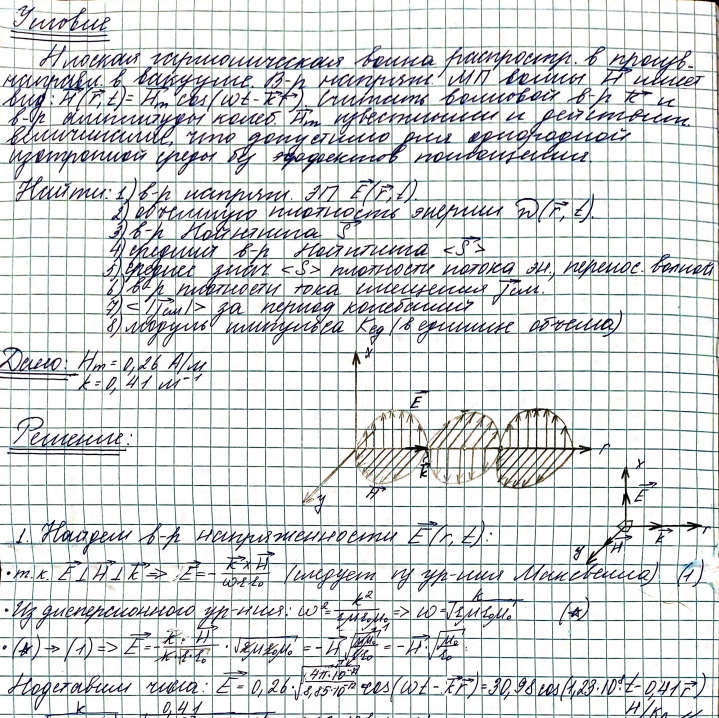 Условие
Плоская гармоническая волна распростр. в произв.
направл. в вакууме. В-р напряж. МП волны H⃗ имеет
вид: H⃗(r⃗,t)=H⃗m cos(ωt-k⃗r⃗). Считать волновой в-р k⃗ и
в-р амплитуды колеб. H⃗m известными и действит.
величинами, что допустимо для однородной
изотропной среды без эффектов поглощения.
Найти: 1) в-р напряж. ЭП E⃗(r⃗,t).
2) объемную плотность энергии ω(r⃗,t).
3) в-р Пойнтинга S⃗
4) средний в-р Пойнтинга <S⃗>
5) среднее знач <S> плотности потока эн., перенос. волной
6) в-р плотности тока смещения j⃗см.
7) <|j⃗см|> за период колебаний
8) модуль импульса Kед (в единице объема)
Дано: Hm = 0,26 А/м
k = 0,41 м⁻¹
x
E⃗
Решение:
k⃗
r
H⃗
y
x
E⃗
r
k⃗
H⃗
y
1. Найдем в-р напряженности E⃗(r,t):
• т.к. E⃗⊥H⃗⊥k⃗ => E⃗=-k⃗×H⃗/ωεε₀ (следует из ур-ния Максвелла) (1)
• Из дисперсионного ур-ния: ω²=k²/εμε₀μ₀ => ω=k/√εμε₀μ₀ (*)
• (*)→(1) => E⃗=-k·H⃗/k·ε·ε₀·√εμε₀μ₀=-H⃗√μμ₀/εε₀=-H⃗·√μ₀/ε₀
Подставим числа: E⃗=0,26·√4π·10⁻⁷/8,85·10⁻¹² cos(ωt-k⃗r⃗)=30,98cos(1,23·10⁸t-0,41r⃗)
k 0,41